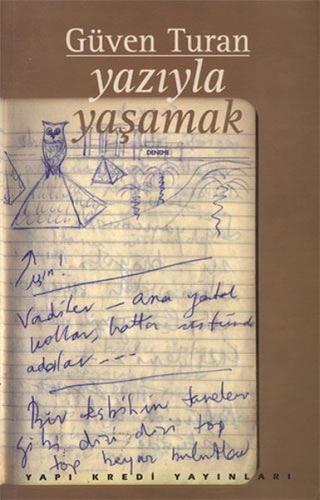 Güven Turan
yazıyla
yaşamak
DENEME
için!
Vadiler – ana yatak
kollar, hatta üstünde
adalar ---
Bir tesbihin taneleri
gibi dizi dizi top
top beyaz bulutlar
YAPI KREDİ YAYINLARI